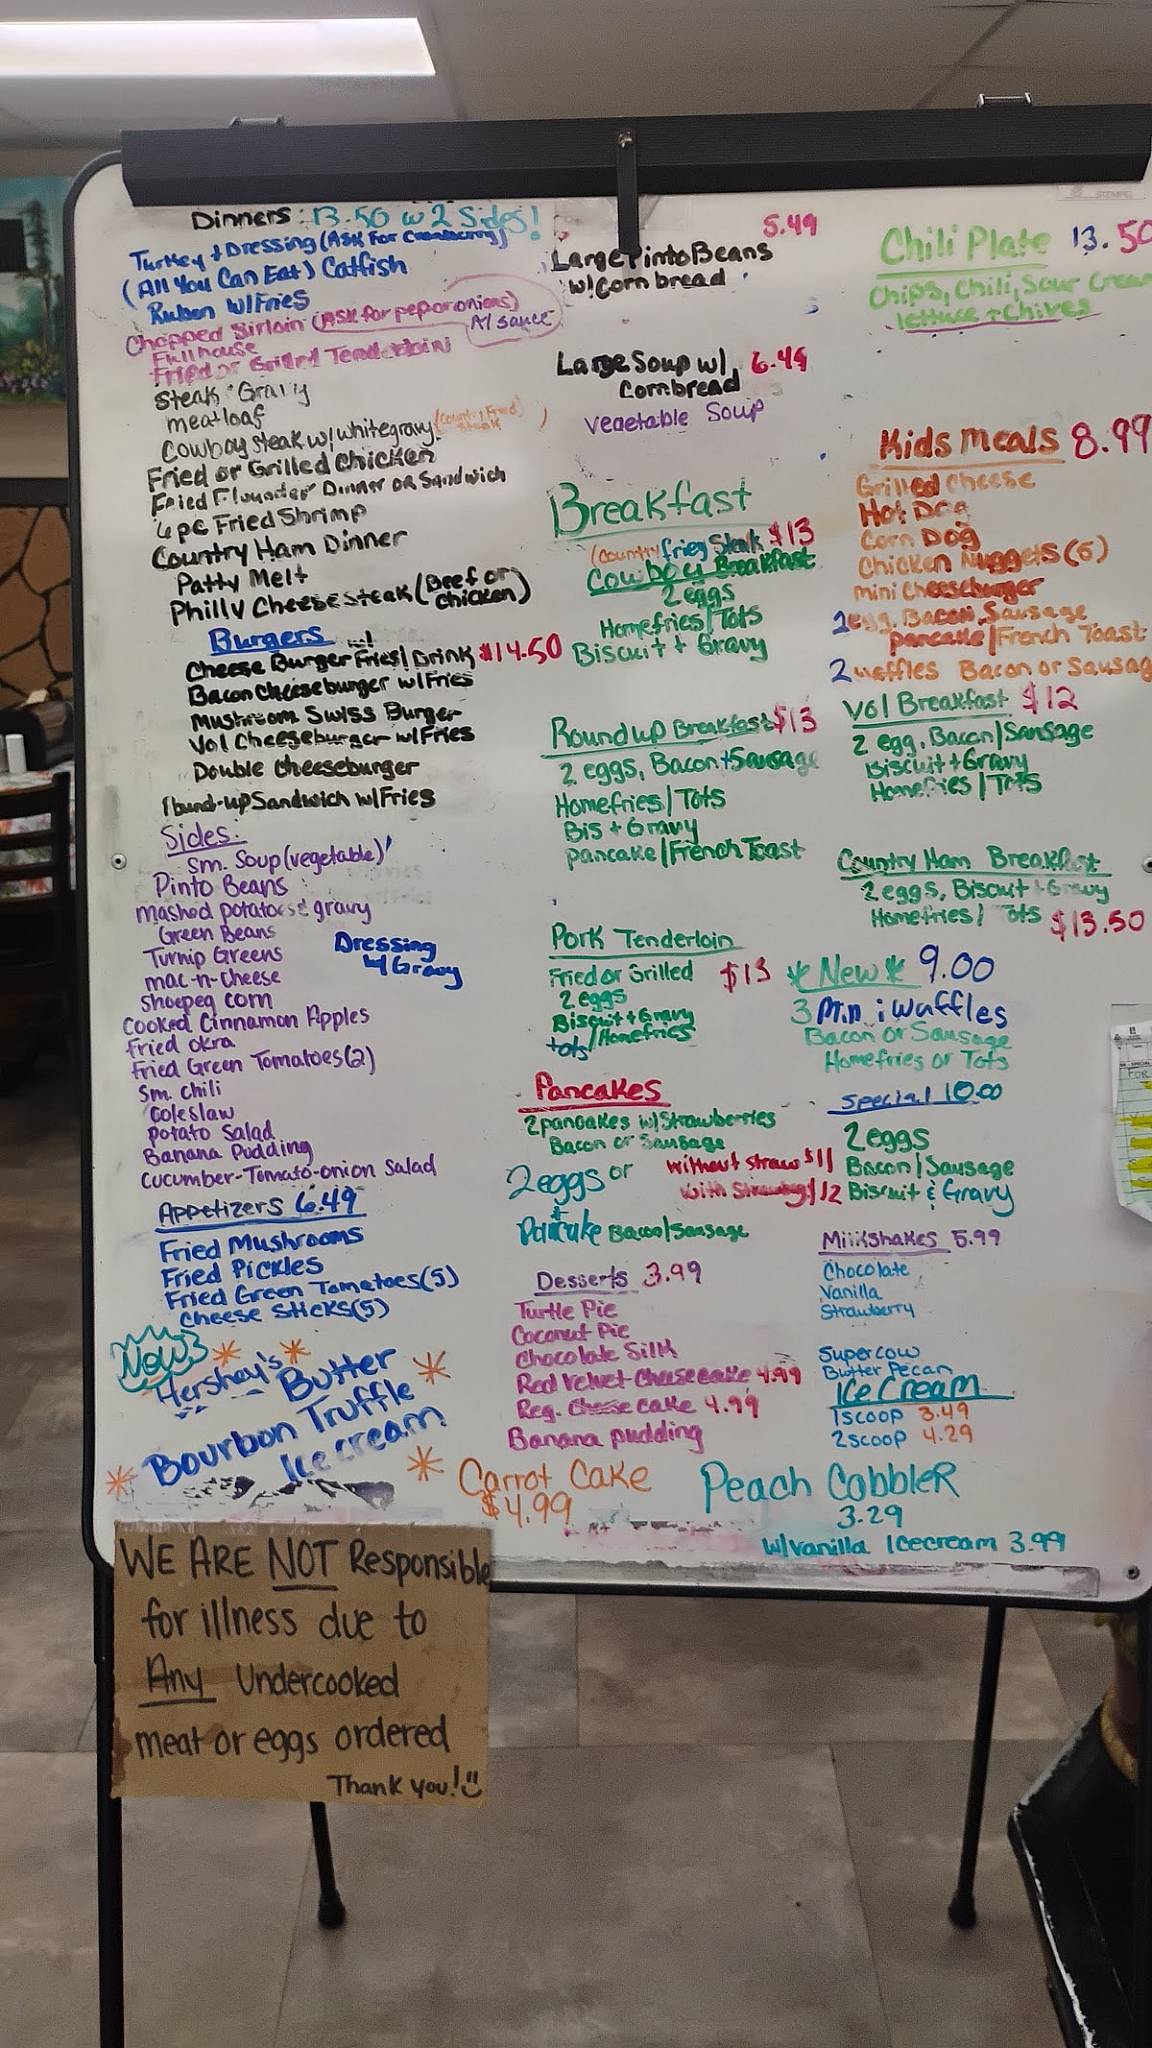 Dinners: 13.50 w 2 Sides!
Turkey + Dressing (Ask For Cranberry)
(All You Can Eat) Catfish
Ruben w/Fries
Chopped Sirloin (Ask for peporonions)
A1 sauce
Fullhouse
Fried or Grilled Tenderloin
Steak Gravy
meatloaf
Cowboy steak w/whitegravy (Country Fried Steak)
Fried or Grilled Chicken
Fried Flounder Dinner or Sandwich
6 pc Fried Shrimp
Country Ham Dinner
Patty Melt
Philly Cheesesteak (Beef or chicken)
Burgers
Cheese Burger Fries/Drink $14.50
Bacon Cheeseburger w/Fries
Mushroom Swiss Burger
Vol Cheeseburger w/Fries
Double Cheeseburger
Round-up Sandwich w/Fries
Sides:
Sm. Soup (vegetable)
Pinto Beans
mashed potatoes & gravy
Green Beans
Turnip Greens
Dressing w/ Gravy
mac-n-cheese
shoepeg corn
Cooked Cinnamon Apples
fried okra
Fried Green Tomatoes (2)
Sm. chili
Coleslaw
potato Salad
Banana Pudding
Cucumber-Tomato-onion Salad
Appetizers 6.49
Fried Mushrooms
Fried Pickles
Fried Green Tomatoes (5)
Cheese Sticks (5)
New
Hershey's Butter
Bourbon Truffle
Ice cream
5.49
Large Pinto Beans
w/ Corn bread
Large Soup w/ 6.49
Cornbread
Vegetable Soup
Breakfast
(Country fried Steak $13
Cowboy Breakfast
2 eggs
Homefries/Tots
Biscuit + Gravy
Roundup Breakfast $13
2 eggs, Bacon + Sausage
Homefries/Tots
Bis + Gravy
pancake/French Toast
Pork Tenderloin
Fried or Grilled $13
2 eggs
Biscuit + Gravy
tots/Homefries
Pancakes
2 pancakes w/Strawberries
Bacon or Sausage
without straw $11
with Strawberry $12
2 eggs or
+
Pancake Bacon/Sausage
Desserts 3.99
Turtle Pie
Coconut Pie
Chocolate Silk
Red Velvet Cheesecake 4.99
Reg. Cheese cake 4.99
Banana pudding
Carrot Cake
$4.99
Chili Plate 13.50
Chips, Chili, Sour Cream
lettuce + Chives
Kids Meals 8.99
Grilled Cheese
Hot Dog
Corn Dog
Chicken Nuggets (6)
mini Cheeseburger
1 egg, Bacon, Sausage
pancake/French Toast
2 waffles Bacon or Sausag
Vol Breakfast $12
2 egg, Bacon/Sausage
Biscuit + Gravy
Homefries/Tots
Country Ham Breakfast
2 eggs, Biscuit + Gravy
Homefries/Tots $13.50
*New* 9.00
3 Mini Waffles
Bacon or Sausage
Homefries or Tots
Special 10.00
2 eggs
Bacon/Sausage
Biscuit & Gravy
Milkshakes 5.99
Chocolate
Vanilla
Strawberry
Supercow
Butter Pecan
Ice Cream
1 scoop 3.49
2 scoop 4.29
Peach CobbleR
3.29
w/vanilla Icecream 3.99
WE ARE NOT Responsible
for illness due to
Any Undercooked
meat or eggs ordered
Thank you!